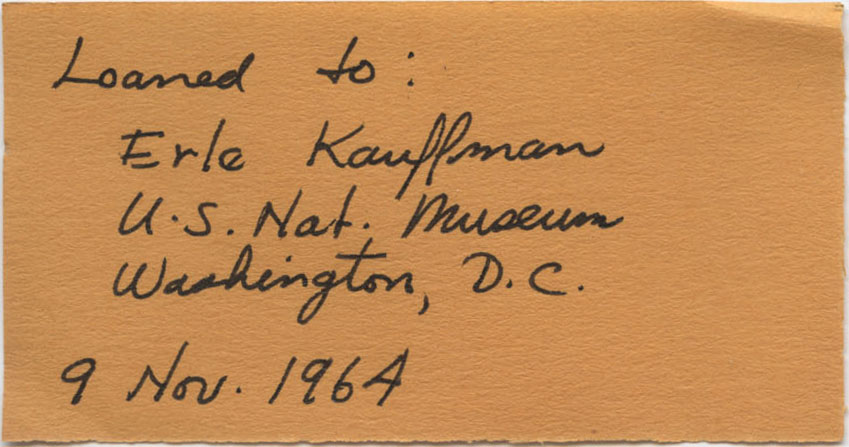 Loaned to:
Erle Kauffman
U.S. Nat. Museum
Washington, D.C.
9 Nov. 1964